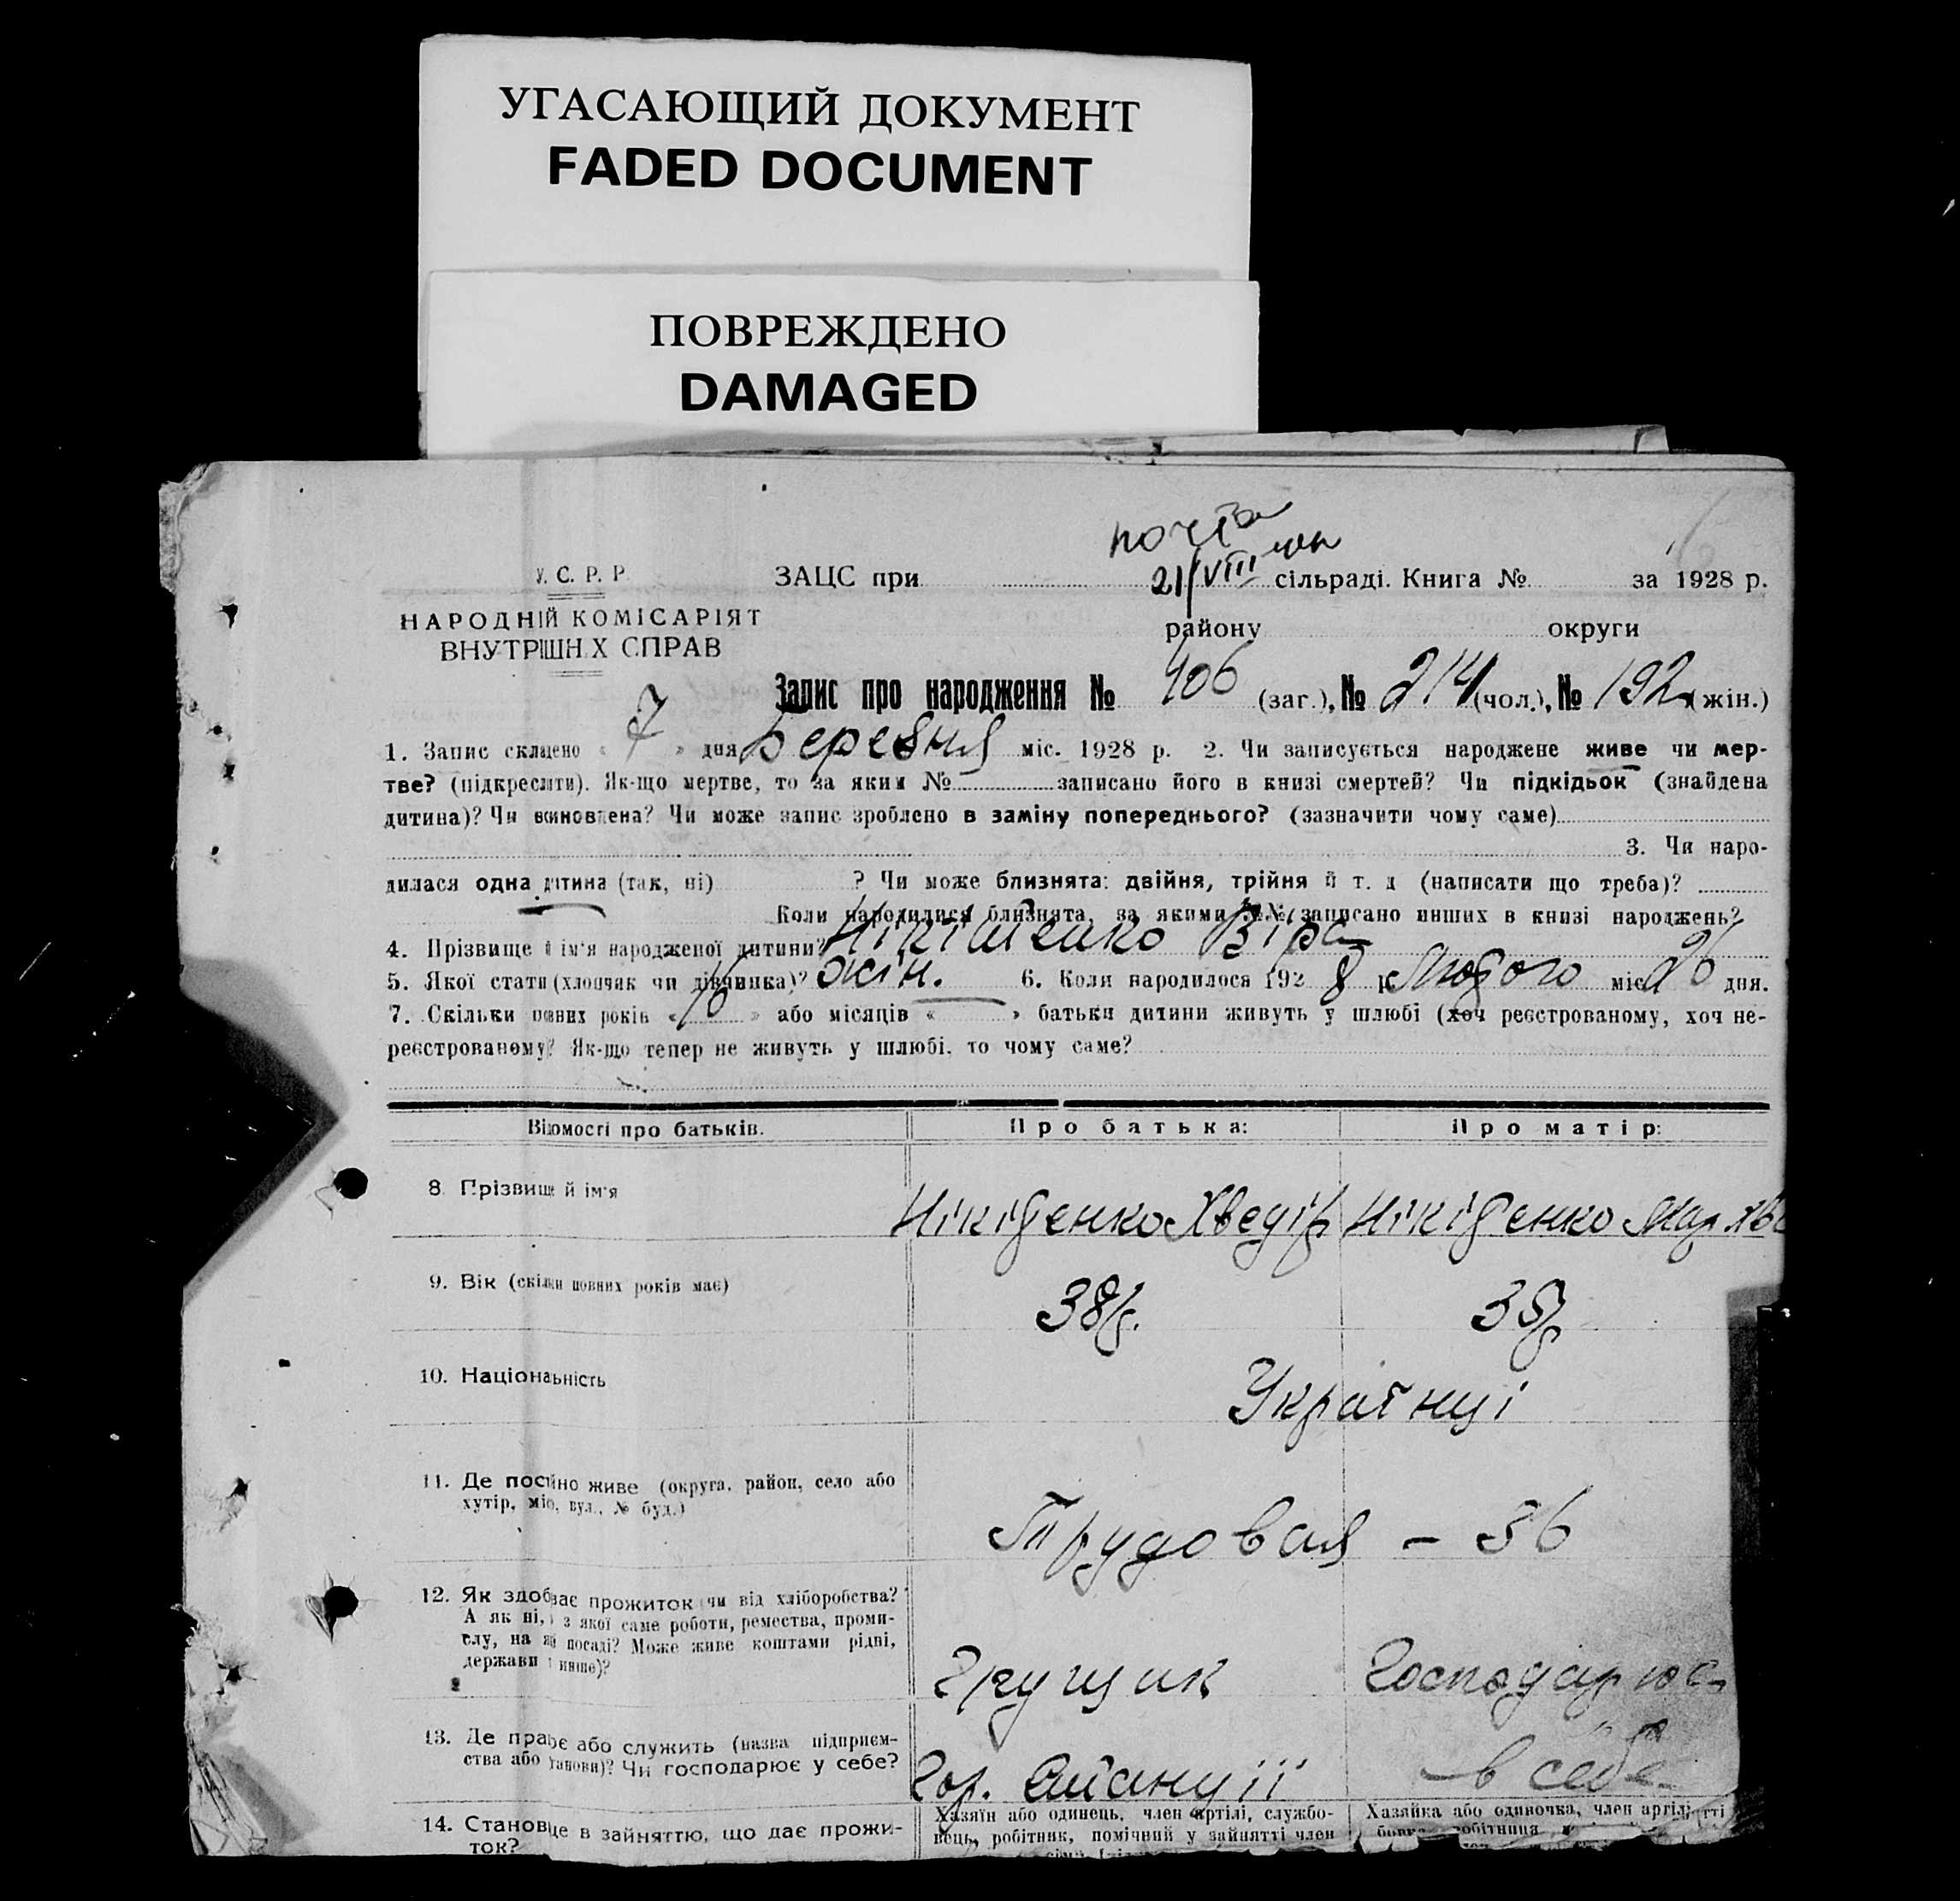 УГАСАЮЩИЙ ДОКУМЕНТ
FADED DOCUMENT
ПОВРЕЖДЕНО
DAMAGED
21/VIII
У. С. Р. Р.
ЗАЦС при сільраді. Книга № за 1928 р.
НАРОДНІЙ КОМІСАРІЯТ
ВНУТРІШНІХ СПРАВ
району округи
Запис про народження № 406 (заг.), № 214 (чол.), № 192 (жін.)
1. Запис складено « 7 » дня Березня міс. 1928 р. 2. Чи записується народжене живе чи мер-
тве? (підкреслити). Як-що мертве, то за яким № записано його в книзі смертей? Чи підкідьок (знайдена
дитина)? Чи Чи може запис зроблено в заміну попереднього? (зазначити чому саме)
3. Чи наро-
дилася одна дитина (так, ні) ? Чи може близнята: двійня, трійня й т. д (написати що треба)?
Коли народилися близнята, за якими №№ записано инших в книзі народжень?
4. Прізвище й ім'я народженої дитини? Нікітенко Віра
5. Якої стати (хлопчик чи дівчинка)? жін. 6. Коли народилося 1928 р. Лютого міс. 26 дня.
7. Скільки повних років « 16 » або місяців « — » батьки дитини живуть у шлюбі (хоч реєстрованому, хоч не-
реєстрованому)? Як-що тепер не живуть у шлюбі, то чому саме?
Відомості про батьків. Про батька: Про матір:
8. Прізвище й ім'я
Нікіденко Хведір Нікіденко
9. Вік (скільки повних років має)
38р. 35р.
10. Національність
Українці
11. Де постійно живе (округа, район, село або
хутір, місто, вул., № буд.)
Трудовая – 36
12. Як здобуває прожиток (чи від хліборобства?
А як ні, з якої саме роботи, ремества, проми-
слу, на якій посаді? Може живе коштами рідні,
держави і инше)?
Грущик Господарює
13. Де працює або служить (назва підприєм-
ства або установи)? Чи господарює у себе?
Гор. Станції в себе
14. Становище в зайняттю, що дає прожи-
ток?
Хазяїн або одинець, член артілі, службо-
вець, робітник, помічний у зайнятті член
Хазяйка або одиночка, член артілі
робітниця